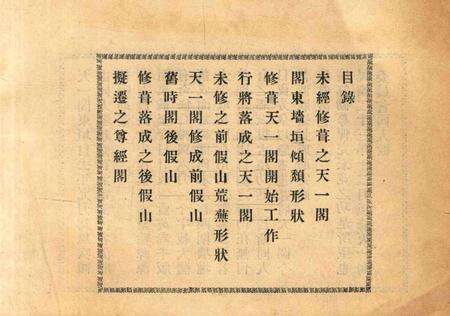 目錄
未經修葺之天一閣
閣東墻垣傾頹形狀
修葺天一閣開始工作
行將落成之天一閣
未修之前假山荒蕪形狀
天一閣修成前假山
舊時閣後假山
修葺落成之後假山
擬遷之尊經閣